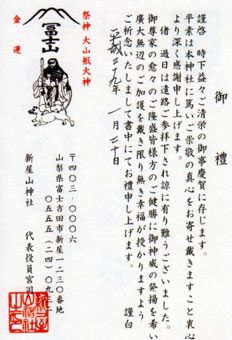 御禮
謹啓 時下益々ご清栄の御事慶賀に存じます。
平素は本神社に篤いご崇敬の真心をお寄せ戴きますこと衷心
より深く感謝申し上げます。
偖 過日は遠路ご参拝下され誠に有り難うございました。
御尊家の愈々のご隆盛皆様方のご健勝に御神威の発揚を希い
広大無辺のご加護を戴き限り無き幸福が授かりますよう
ご祈念いたしまして書中にてお禮申し上げます。
謹白
平成二九年 一月二十日
祭神 大山祇大神
金運
冨士山
〒四〇三‐〇〇〇六
山梨県富士吉田市新屋一二三〇番地
〇五五五(二四)〇九三
新屋山神社
代表役員宮司